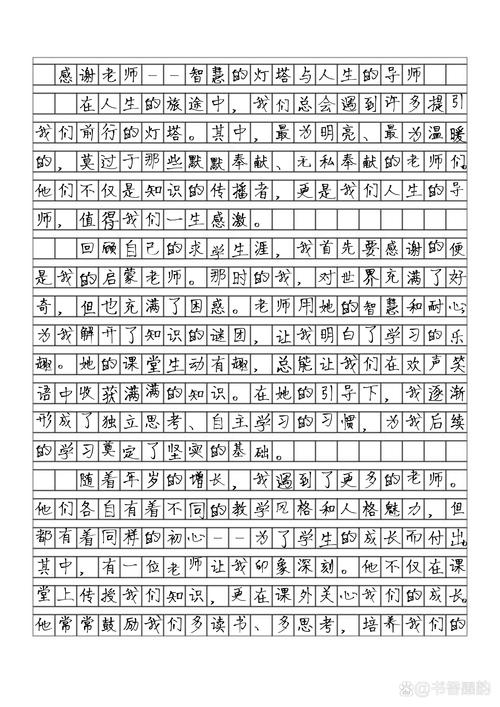 感谢老师——智慧的灯塔与人生的导师
在人生的旅途中，我们总会遇到许多提引
我们前行的灯塔。其中，最为明亮、最为温暖
的，莫过于那些默默奉献、无私奉献的老师们。
他们不仅是知识的传播者，更是我们人生的导
师，值得我们一生感激。
回顾自己的求学生涯，我首先要感谢的便
是我的启蒙老师。那时的我，对世界充满了好
奇，但也充满了困惑。老师用她的智慧和耐心
为我解开了知识的谜团，让我明白了学习的乐
趣。她的课堂生动有趣，总能让我们在欢声笑
语中收获满满的知识。在她的引导下，我逐渐
形成了独立思考、自主学习的习惯，为我后续
的学习奠定了坚实的基础。
随着年岁的增长，我遇到了更多的老师。
他们各自有着不同的教学风格和人格魅力，但
都有着同样的初心——为了学生的成长而付出。
其中，有一位老师让我印象深刻。他不仅在课
堂上传授我们知识，更在课外关心我们的成长。
他常常鼓励我们多读书、多思考，培养我们的